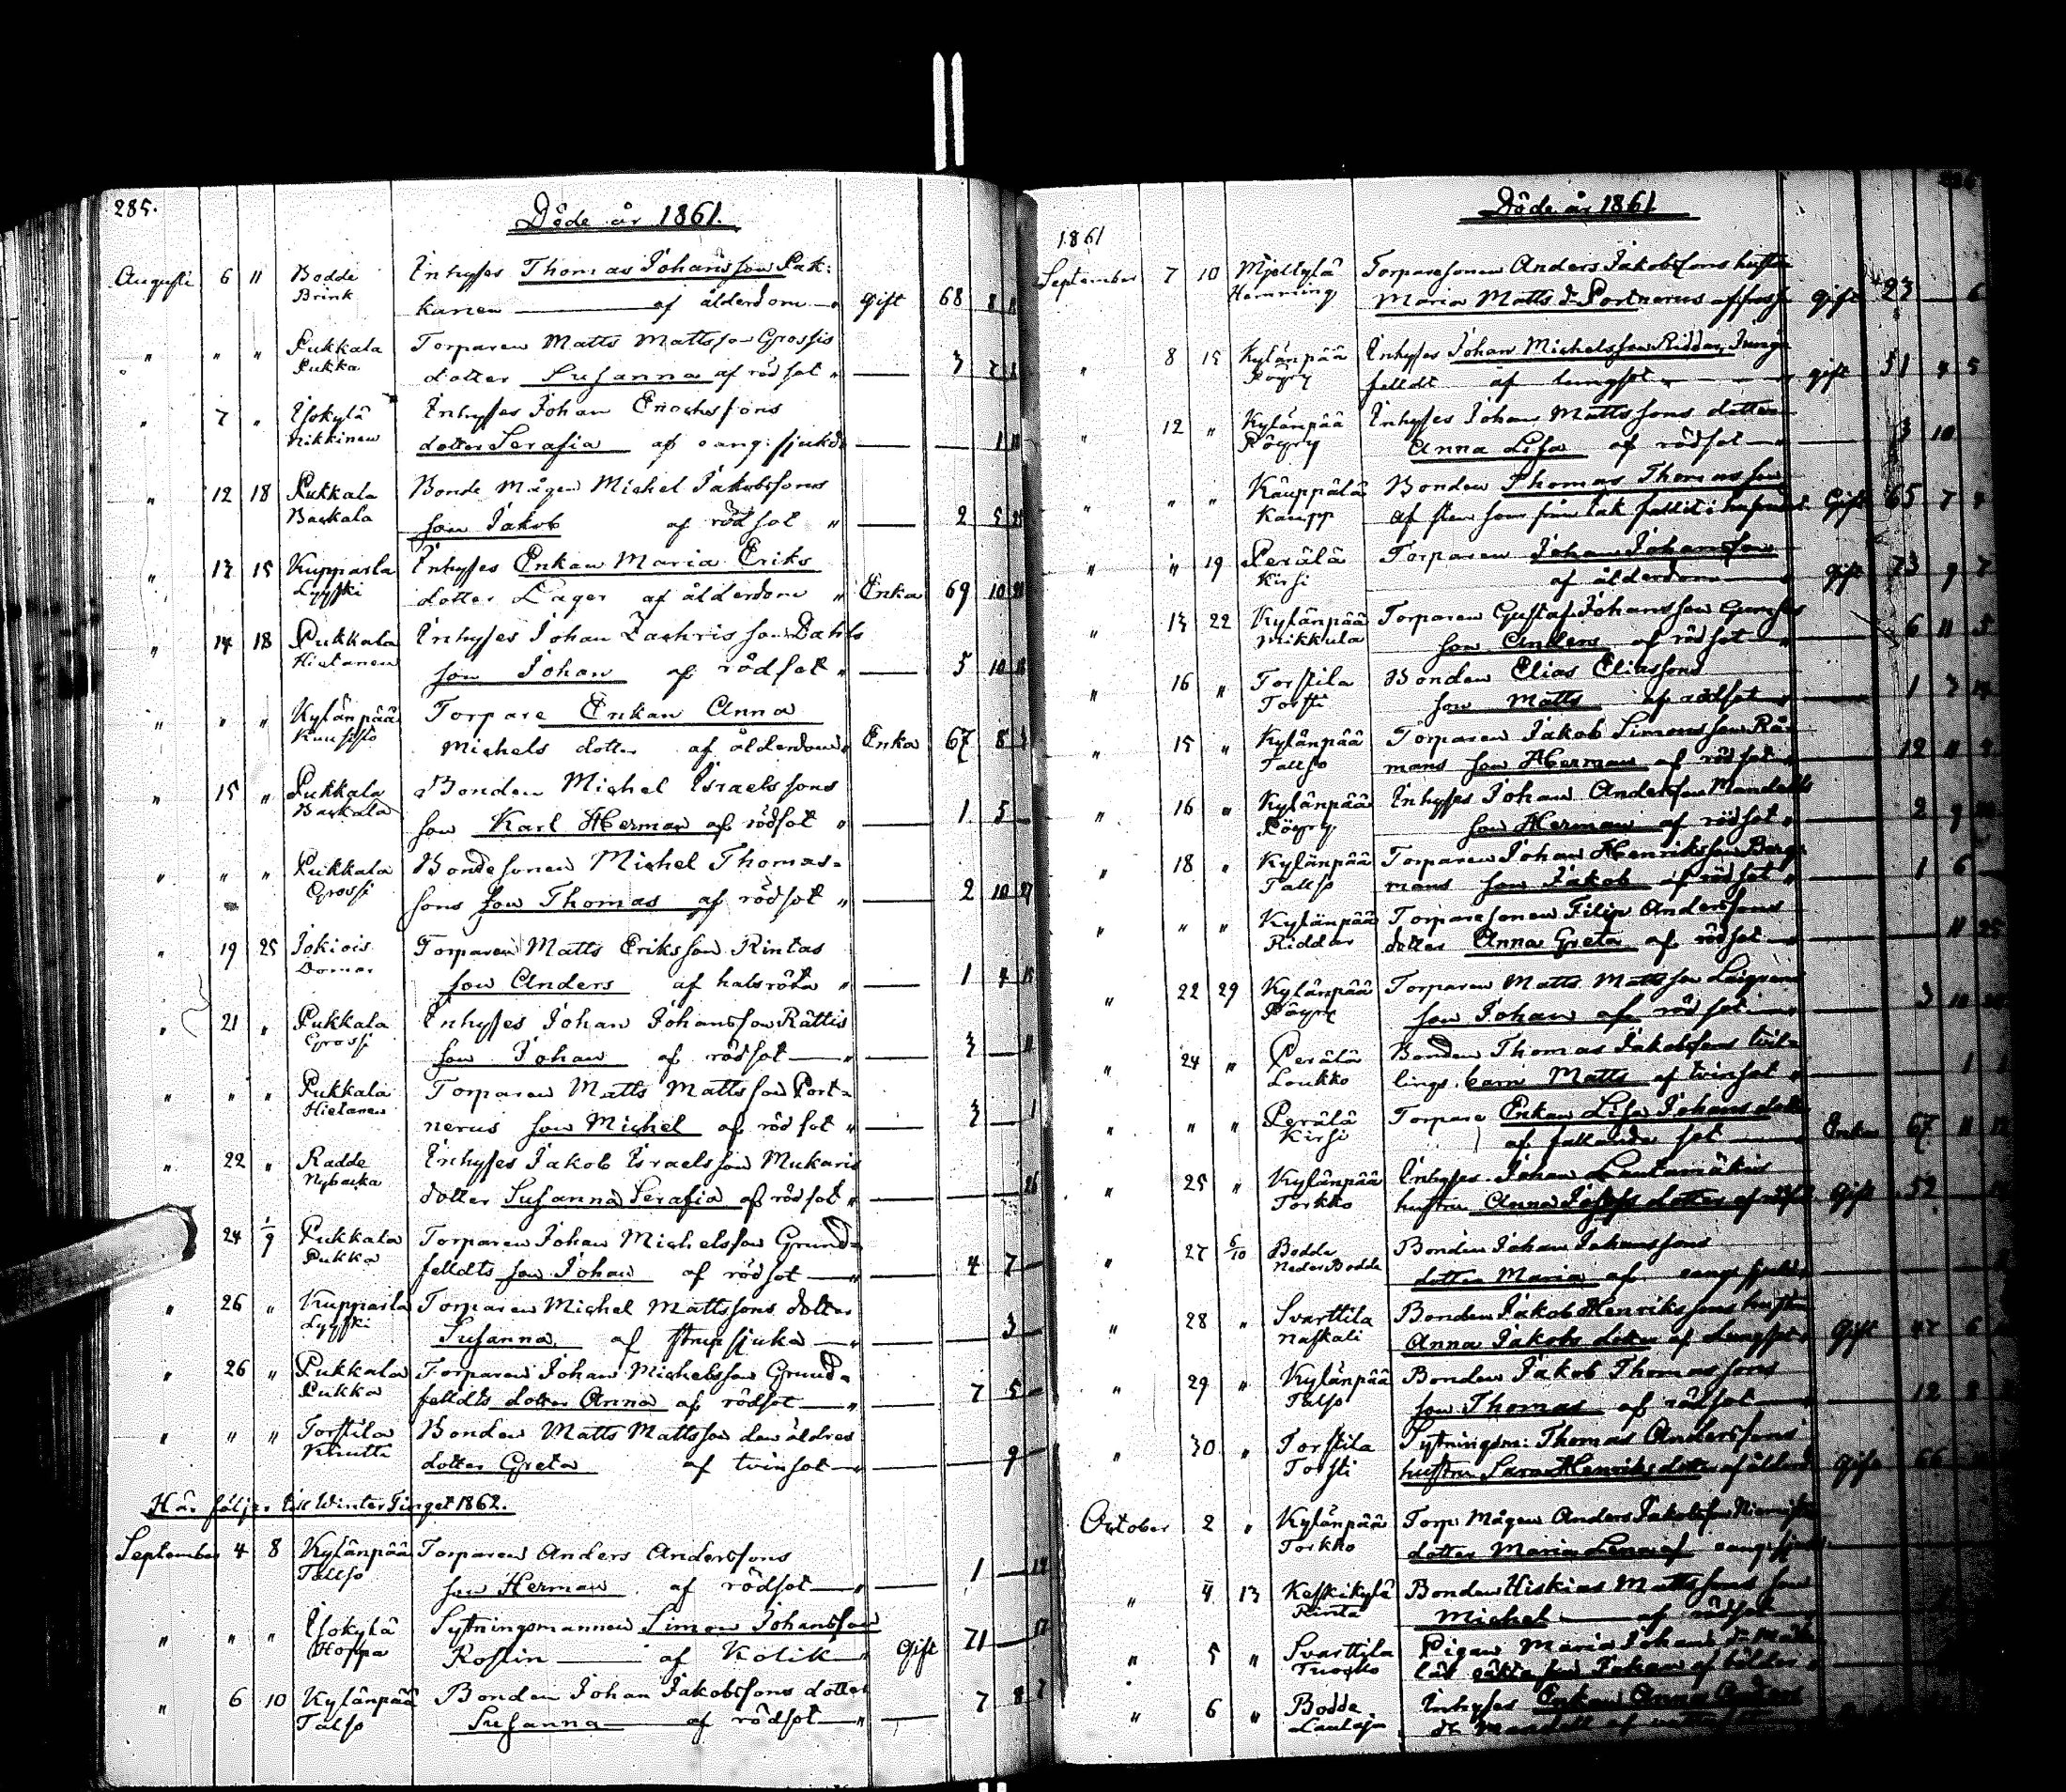 285.
Döde år 1861.
Augusti 6 11 Bodde Inhyses Thomas Johansson Pak:
Brink kanen af ålderdom Gift 68 8
" " " Pukkala Torparen Matts Mattsson Grossis
Pukka dotter Susanna af rödsot " 3 7
" 7 " Isokylä Inhyses Johan Enochssons
Nikkinen dotter Serafia af oang: sjukd. 1
" 12 18 Pukkala Bonde Mågen Michel Jakobssons
Backala son Jakob af rödsot " 2 5
" 13 15 Kupparla Inhyses Enkan Maria Eriks
Lyyski dotter Lager af ålderdom " Enka 69 10
" 14 18 Pukkala Inhyses Johan Zachrisson Dahls
Hietanen son Johan af rödsot " 5 10
" " " Kylänpää Torpare Enkan Anna
Kuusisto Michels dotter af ålderdom " Enka 67 8
" 15 " Pukkala Bonden Michel Israelssons
Backala son Karl Herman af rödsot " 1 5
" " " Pukkala Bondesonen Michel Thomas-
Grossi sons son Thomas af rödsot " 2 10 27
" 19 25 Jokiois Torparen Matts Eriksson Rintas
Domar son Anders af halsröta " 1 4 15
" 21 " Pukkala Inhyses Johan Johansson Rättis
Grossi son Johan af rödsot " 3 11
" " " Pukkala Torparen Matts Mattsson Port-
Hietanen nerus son Michel af rödsot " 3 1
" 22 " Radde Inhyses Jakob Israelsson Mukaris
Nybacka dotter Susanna Serafia af rödsot " 26
24 1/9 Pukkala Torparen Johan Michelsson Grund-
Pukka felldts son Johan af rödsot " 4 7
" 26 " Kupparla Torparen Michel Mattssons dotter
Lyyski Susanna af strupsjuka 3
" 26 " Pukkala Torparen Johan Michelsson Grund-
Pukka felldts dotter Anna af rödsot " 7 5
" " " Torstila Bonden Matts Mattsson den äldres
Knutti dotter Greta af tvinsot 9
Här följer till Winter Tinget 1862.
September 4 8 Kylänpää Torparen Anders Anderssons
Tallso son Herman af rödsot " 1
" " " Isokylä Sytningsmannen Simon Johansson
Hoppa Roslin af Kolik Gift 71 17
" 6 10 Kylänpää Bonden Johan Jakobssons dotter
Talso Susanna af rödsot " 7 8 7
Döde år 1861
1861
September 7 10 Mjeltylä Torparesonen Anders Jakobssons hustru
Hemming Maria Matts dr Portnerus af Gift 23 6
" 8 15 Kylänpää Inhyses Johan Michelsson Riddar, Ljung-
Pöyry felldt af lungsot Gift 51 4 5
" 12 " Kylänpää Inhyses Johan Mattssons dotter
Pöyry Anna Lisa af rödsot " 3 10
" " " Käuppälä Bonden Thomas Thomasson
Kaupp af sten som från tak fallit i hufvudet Gift 65 7 4
" " 19 Perälä Torparen Johan Johansson
Kirsi af ålderdom Gift 73 9 7
" 13 22 Kylänpää Torparen Gustaf Johansson
Mikkula son Anders af rödsot 6 11 5
" 16 " Torstila Bonden Elias Eliassons
Torsti son Matts af rödsot 1 7 14
" 15 " Kylänpää Torparen Jakob Simonsson
Tallso mans son Herman af rödsot 12 11
" 16 " Kylänpää Inhyses Johan Andersson Mandells
Pöyry son Herman af rödsot 2 9
" 18 " Kylänpää Torparen Johan Henriksson Berg-
Tallso mans son Jakob af rödsot " 1 6
" " " Kylänpää Torparesonen Filip Anderssons
Riddar dotter Anna Greta af rödsot 11 25
" 22 29 Kylänpää Torparen Matts Mattsson
Pöyry son Johan af rödsot 3 10
" 24 " Perälä Bonden Thomas Jakobssons tvil-
Loukko lings barn Matts af tvinsot " 1
" " " Perälä Torpare Enkan Lisa Johans dotter
Kirsi af fallande sot Enka 67 11 12
" 25 " Kylänpää Inhyses Johan Lautamäkis
Torkko hustru Anna Josefs dotter af rödsot Gift 52
" 27 6/10 Bodde Bonden Johan Johanssons
Neder Bodde dotter Maria af oang sjukd
" 28 " Svarttila Bonden Jakob Henrikssons hustru
Naskali Anna Jakobs dotter af Lungsot Gift 47 6
" 29 " Kylänpää Bonden Jakob Thomassons
Talso son Thomas af rödsot 12 8
" 30 " Torstila Sytningsm: Thomas Anderssons
Torsti hustru Sara Henriks dotter af ålderd Gift 66
October 2 " Kylänpää Torp: Mågen Anders Jakobsson
Torkko dotter Maria Lena af oang: sjukd.
" 4 13 Keskikylä Bonden Hiskias Mattssons son
Rinta Michel af rödsot
" 5 " Svarttila Pigan Maria Johans dr
Tuorko son Johan af bölder
" 6 " Bodde Inhyses Enkan Anna Anders
Lautaja dr Mandell af